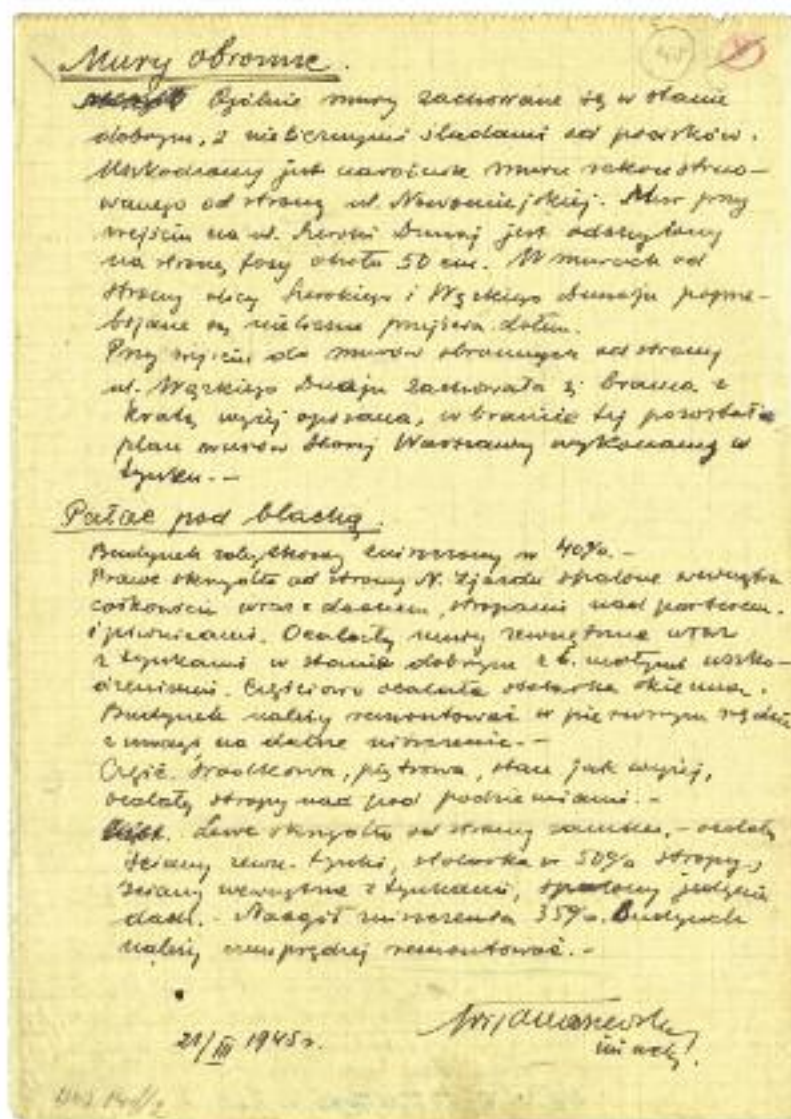 Mury obronne.
Ogólnie mury zachowane są w stanie
dobrym, z nielicznymi śladami od pocisków.
Uszkodzony jest narożnik muru rekonstruo-
wanego od strony ul. Nowomiejskiej. Mur przy
wejściu na ul. Szeroki Dunaj jest odchylony
na stronę fosy około 50 cm. W murach od
strony ulicy Szerokiego i Wąskiego Dunaju poprze-
bijane są nieliczne przejścia dołem.
Przy wejściu do murów obronnych od strony
ul. Wąskiego Dunaju zachowała się brama z
kratą wyżej opisana, w bramie tej pozostał
plan murów Starej Warszawy wykonany w
tynku.-
Pałac pod blachą.
Budynek zabytkowy zniszczony w 40%.-
Prawe skrzydło od strony N. Zjazdu spalone wewnątrz
całkowicie wraz z dachem, stropami nad parterem
i piwnicami. Ocalały mury zewnętrzne wraz
z tynkami w stanie dobrym z b. małymi uszko-
dzeniami. Częściowo ocalała stolarka okienna.
Budynek należy remontować w pierwszym rzędzie
z uwagi na dalsze niszczenie.-
Część środkowa, piętrowa, stan jak wyżej,
ocalały stropy nad pod podziemiami.-
Lewe skrzydło od strony zamku,- ocalały
ściany zewn. tynki, stolarka w 50% stropy,
ściany wewnętrzne z tynkami, spalony jedynie
dach.- Naogół zniszczenia 35%. Budynek
należy czemprędzej remontować.-
21/III 1945 r.